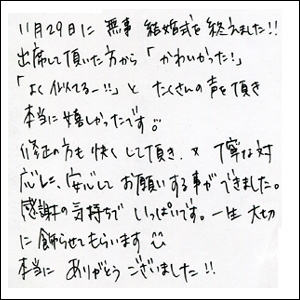 11月29日に 無事 結婚式を終えました!!
出席して頂いた方から「かわいかった!」
「よく似てるー!!」と たくさんの声を頂き
本当に嬉しかったです。
修正の方も快くして頂き、丁寧な対
応した、安心してお願いする事ができました。
感謝の気持ちで いっぱいです。一生 大切
に飾らせてもらいます
本当に ありがとう ございました!!